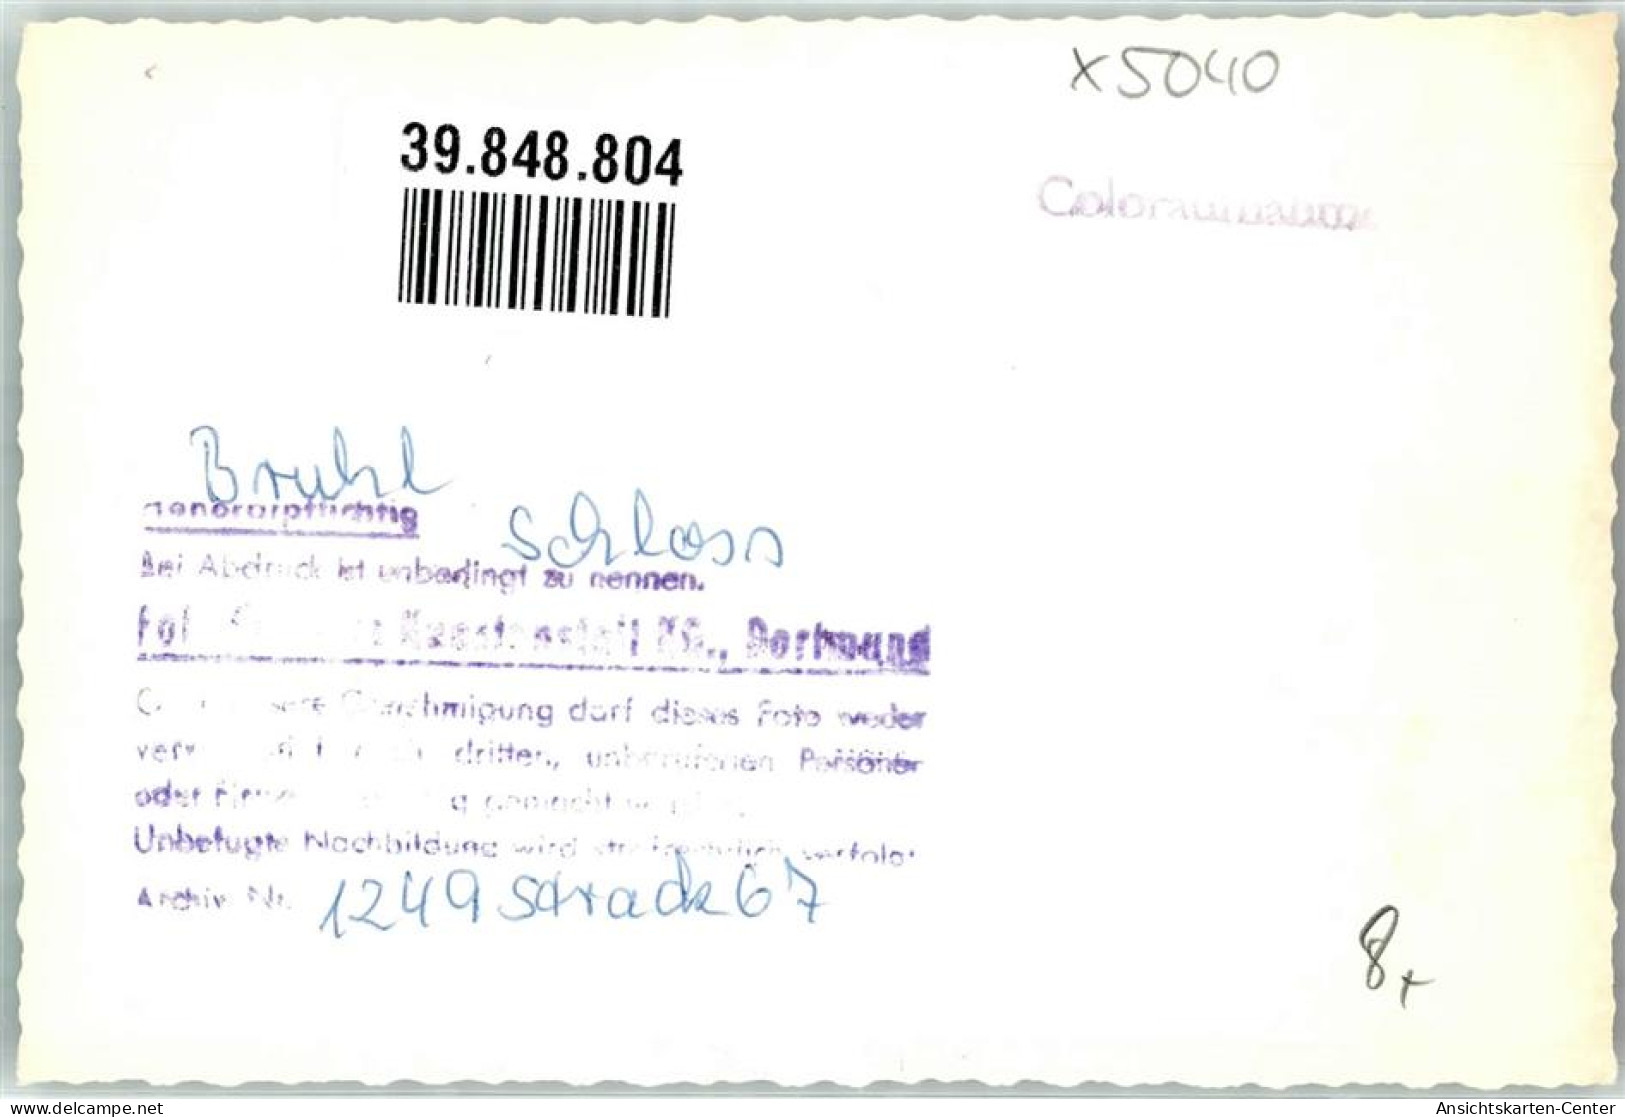 x5040
39.848.804
Coloraufnahme
Bruhl
Honorarpflichtig
Schloss
Bei Abdruck ist unbedingt zu nennen.
Kunstanstalt KG., Dortmund
unsere Genehmigung darf dieses Foto weder
dritten, unberufenen Personen
oder gemacht
Unbefugte Nachbildung wird strafrechtlich verfolgt
Archiv Nr. 1249 Strack 67
8+
www.delcampe.net
Ansichtskarten-Center